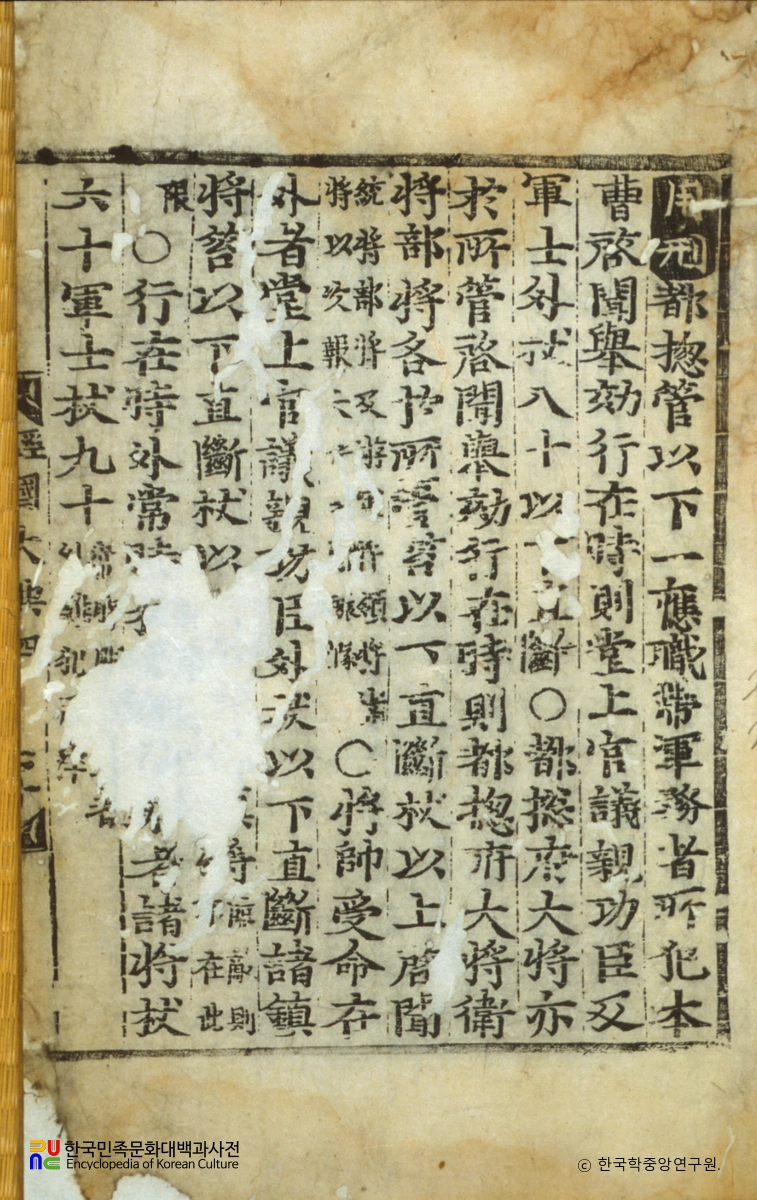 用刑都摠管以下一應職帶軍務者所犯本
曹啓聞擧劾行在時則堂上官議親功臣及
軍士外杖八十以下直斷○都摠府大將亦
於所管啓聞擧劾行在時則都摠府大將衛
將部將各於所管笞以下直斷杖以上啓聞
統將部將及游
將以次報
領將
○將帥受命在
外者堂上官議親功臣外杖以下直斷諸鎭
將笞以下直斷杖以
將 臨敵則
不在此
限○行在時外常時
者諸將杖
六十軍士杖九十
經國大典四
한국민족문화대백과사전
Encyclopedia of Korean Culture
© 한국학중앙연구원.